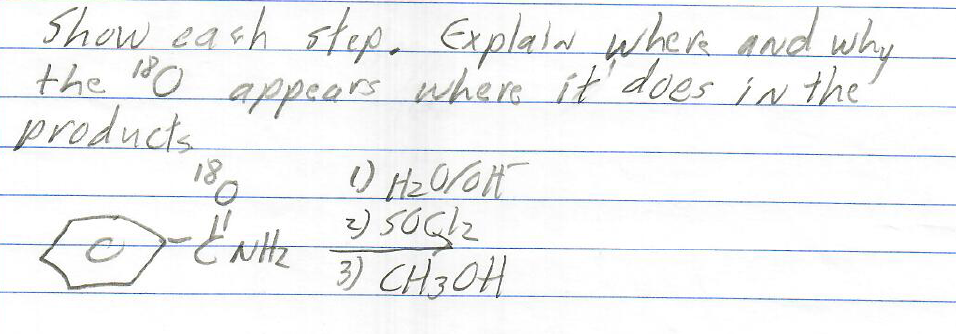 Show each step. Explain where and why
the ¹⁸O appears where it does in the
products
¹⁸O
1) H₂O/OH⁻
C NH₂
2) SOCl₂
3) CH₃OH